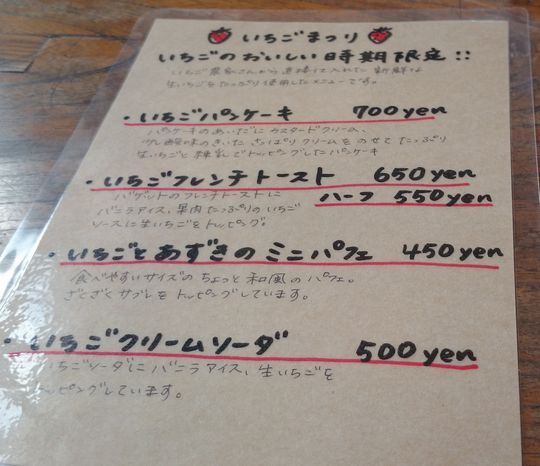 いちごまつり
いちごのおいしい時期限定！！
いちご農家さんから直接仕入れた新鮮な
生いちごをたっぷり使用したメニューです。
・いちごパンケーキ 700yen
パンケーキのあいだにカスタードクリーム、
少し酸味のきいたさっぱりクリームをのせてたっぷり
生いちごと練乳でトッピングしたパンケーキ
・いちごフレンチトースト 650yen
バゲットのフレンチトーストに ハーフ 550yen
バニラアイス、果肉たっぷりのいちご
ソースに生いちごをトッピング。
・いちごとあずきのミニパフェ 450yen
食べやすいサイズのちょっと和風のパフェ。
ざくざくサブレをトッピングしています。
・いちごクリームソーダ 500yen
いちごソーダにバニラアイス、生いちごを
トッピングしています。